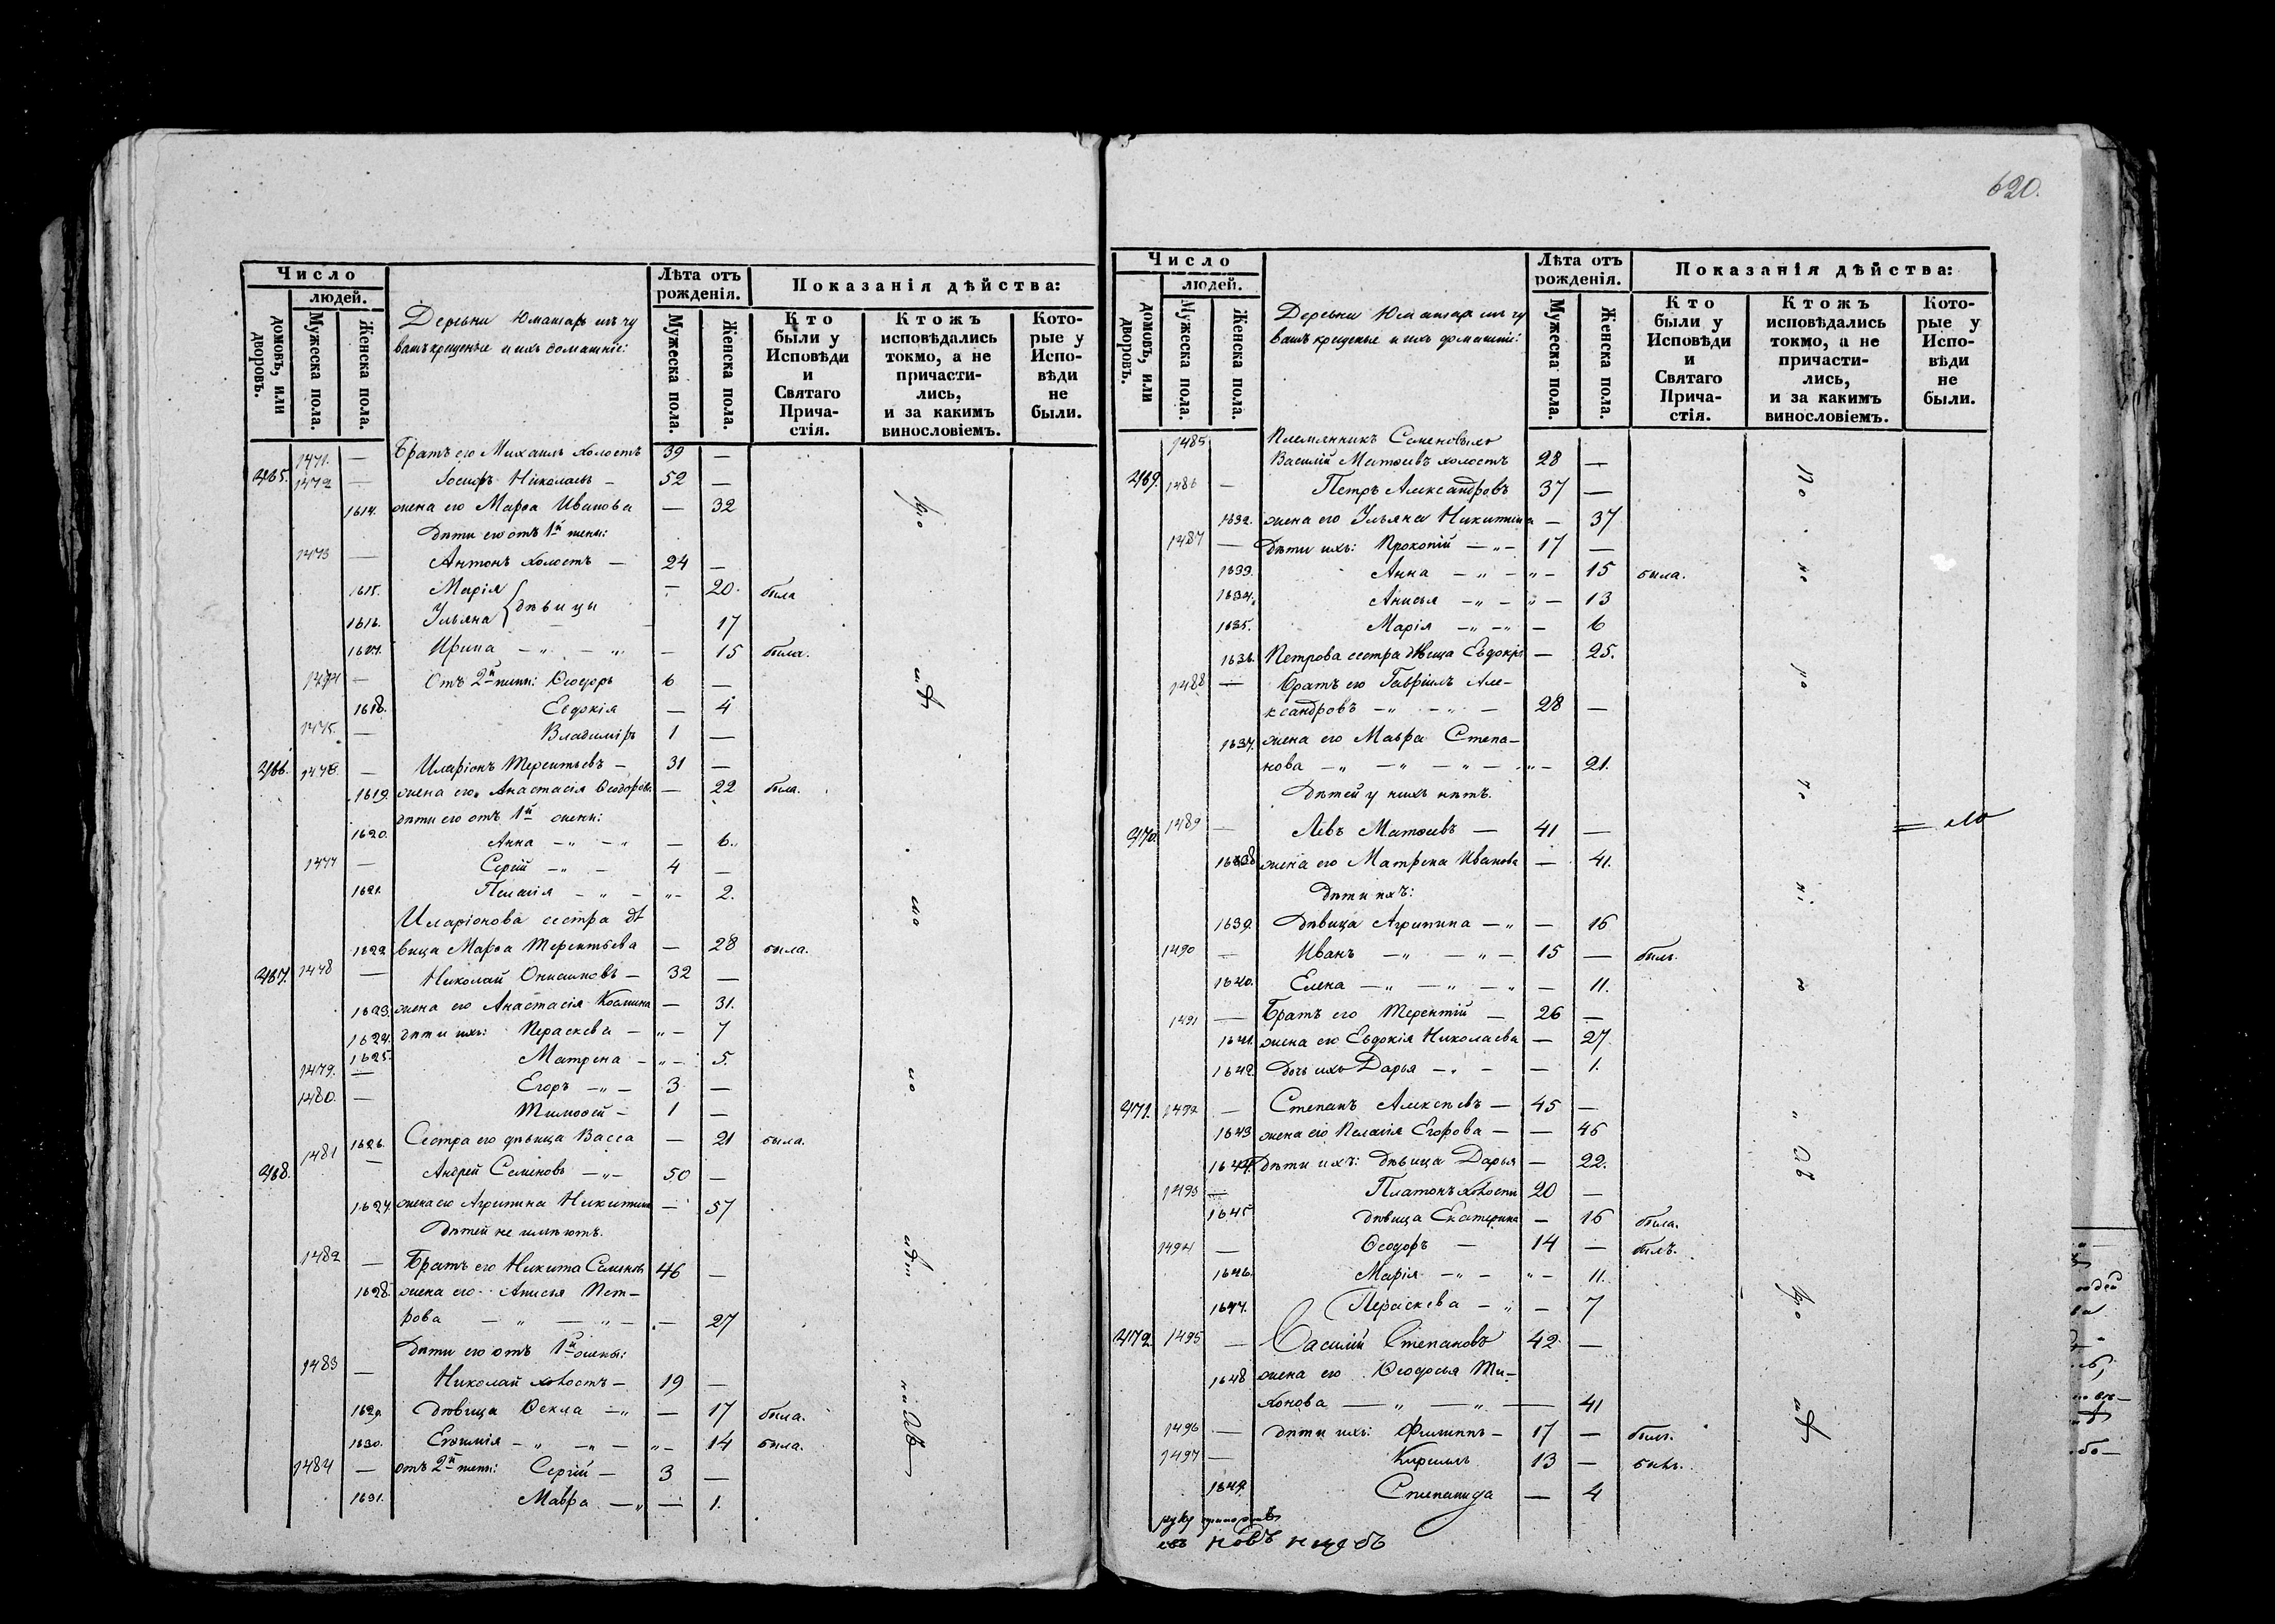 620.
Число
людей.
домовъ, или дворовъ.
Мужеска пола.
Женска пола.
Деревни Юматарь изъ чу
вашъ крещеные и ихъ домашніе:
Лѣта отъ рожденія.
Мужеска пола.
Женска пола.
Показанія дѣйства:
Кто были у Исповѣди и Святаго Прича-стія.
Ктожъ исповѣдались токмо, а не причасти-лись, и за какимъ винословіемъ.
Кото-рые у Испо-вѣди не были.
1471. — Братъ его Михаилъ холостъ 39 —
465. 1472 — Іосифъ Николаевъ — 52 —
1614. жена его Марѳа Иванова — 32
Дѣти его отъ 1й жены:
1473 — Антонъ холостъ — 24 —
1615. Марія — 20. была
дѣвицы
1616. Ульяна 17
1617. Ирина — 15 была.
1474 — Отъ 2й жены: Ѳеодоръ 6 —
1618. Евдокія — 4
1475. — Владиміръ 1 —
466. 1476. — Иларіонъ Терентьевъ — 31 —
1619. жена его Анастасія Ѳеодоров. — 22 была.
дѣти его отъ 1й жены:
1620. Анна — 6.
1477 — Сергій 4 —
1621. Пелагія — 2.
Иларіонова сестра дѣ
1622. вица Марѳа Терентьева — 28 была.
467. 1478 — Николай Онисимовъ — 32 —
1623. жена его Анастасія Козмина — 31.
1624. дѣти ихъ: Параскева — 7
1625. Матрена — 5.
1479. — Егоръ 3 —
1480. — Тимоѳей — 1 —
1626. Сестра его дѣвица Васса — 21 была.
468. 1481 — Андрей Семеновъ 50 —
1627 жена его Агрипина Никитина — 57
Дѣтей не имѣютъ.
1482 — Братъ его Никита Семеновъ 46 —
1628. жена его Анисья Пет—
рова — 27
Дѣти его отъ 1й жены:
1483 — Николай холостъ — 19 —
1629. Дѣвица Ѳекла — 17 была.
1630. Евѳимія — 14 была.
1484 — отъ 2й жены: Сергій — 3 —
1631. Мавра — 1.
Число
людей.
домовъ, или дворовъ.
Мужеска пола.
Женска пола.
Деревни Юматарь изъ чу
вашъ крещеные и ихъ домашніе:
Лѣта отъ рожденія.
Мужеска пола.
Женска пола.
Показанія дѣйства:
Кто были у Исповѣди и Святаго Прича-стія.
Ктожъ исповѣдались токмо, а не причасти-лись, и за какимъ винословіемъ.
Кото-рые у Испо-вѣди не были.
1485 Племянникъ Семеновыхъ
Василій Матѳеевъ холостъ 28 —
469. 1486 — Петръ Александровъ 37 —
1632. жена его Ульяна Никитина — 37
1487 — Дѣти ихъ: Прокопій 17 —
1633. Анна — 15 была.
1634. Анисья — 13
1635. Марія — 6
1636. Петрова сестра дѣвица Евдокія — 25.
1488 — Братъ его Гавріилъ Але—
ксандровъ — 28 —
1637. жена его Мавра Степа—
нова — 21.
Дѣтей у нихъ нѣтъ.
470. 1489 — Левъ Матѳеевъ — 41 —
1638 жена его Матрена Иванова — 41.
дѣти ихъ:
1639. Дѣвица Агрипина — 16
1490 — Иванъ 15 — былъ.
1640. Елена — 11.
1491 — Братъ его Терентій — 26 —
1641. жена его Евдокія Николаева — 27.
1642. Дочь ихъ Дарья — 1.
471. 1492 — Степанъ Алексѣевъ — 45 —
1643 жена его Пелагія Егорова — 45
1644. Дѣти ихъ: Дѣвица Дарья — 22.
1493 — Платонъ холостъ 20 —
1645 дѣвица Екатерина — 16 была.
1494 — Ѳеодоръ — 14 — былъ.
1646. Марія — 11.
1647. Параскева — 7
472. 1495 — Василій Степановъ 42 —
1648 жена его Ѳеодосья Ти—
хонова — 41
1496 — Дѣти ихъ: Филиппъ — 17 — былъ.
1497 — Кириллъ 13 — былъ.
1649. Степанида — 4